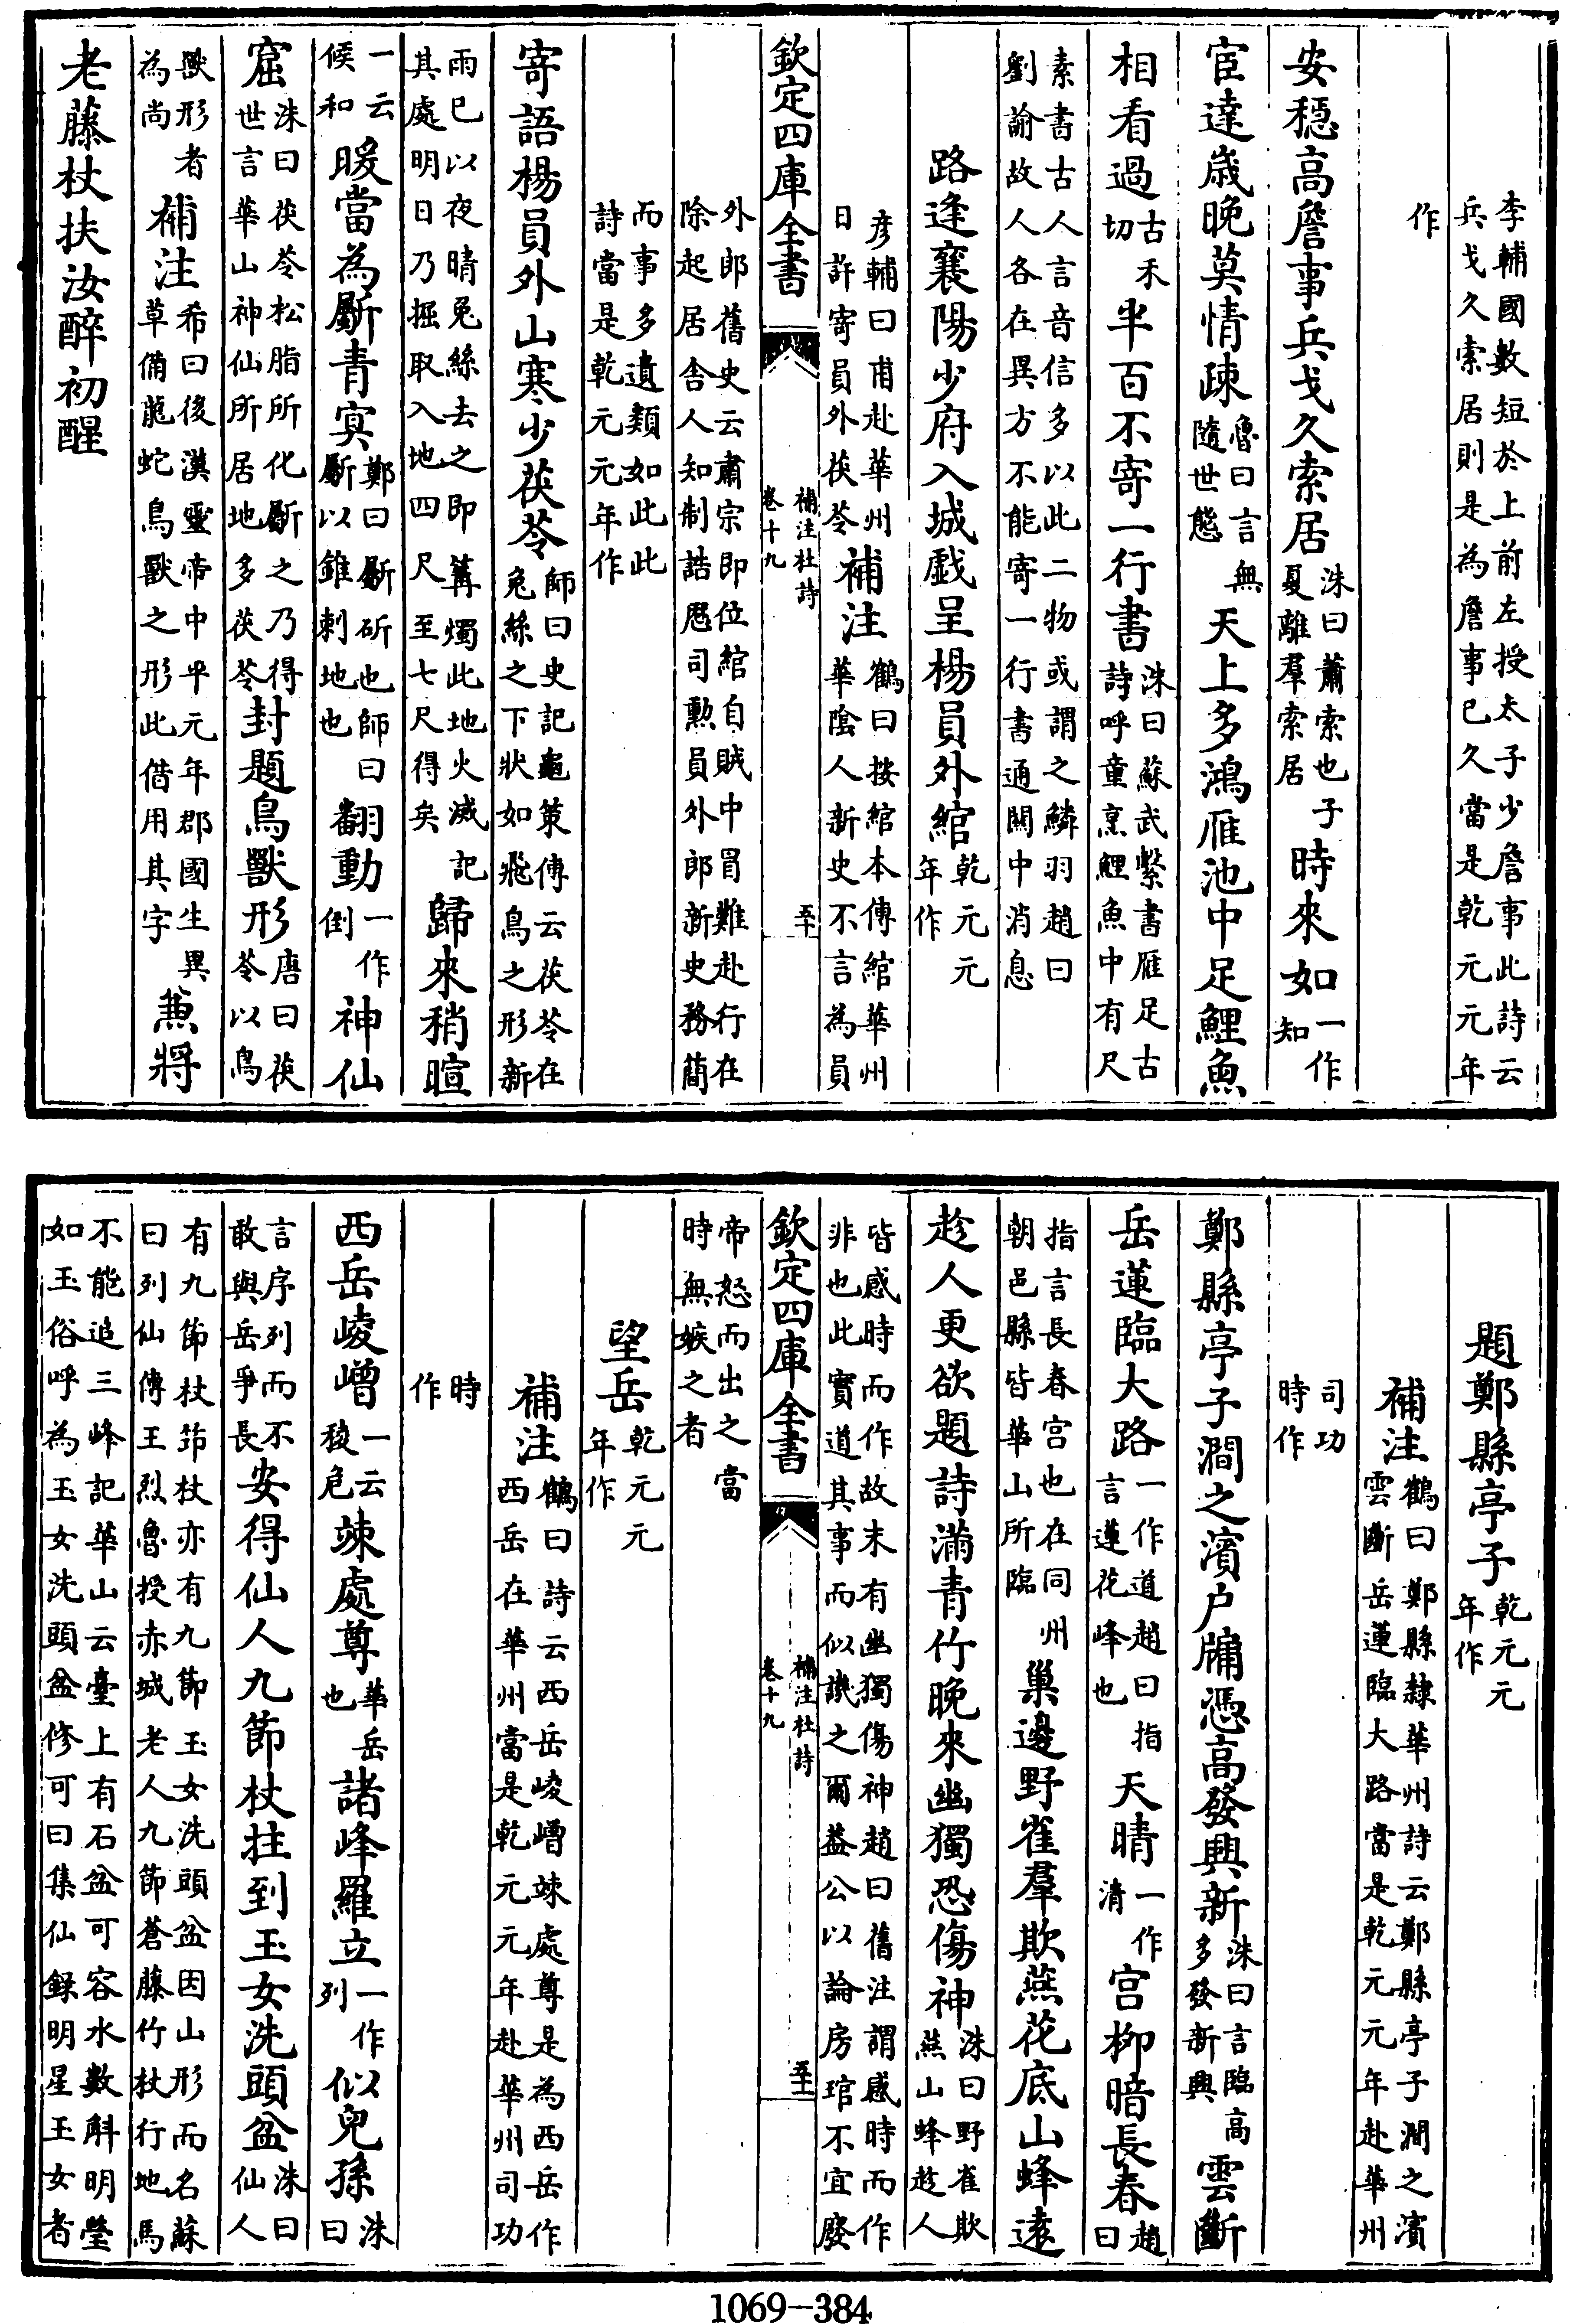 李輔國數短於上前左授太子少詹事此詩云
兵戈久索居則是為詹事已久當是乾元元年
作
安穩高詹事兵戈久索居洙曰蕭索也子夏離羣索居時來如一作知
宦達歲晚莫情疎魯曰言無隨世態天上多鴻雁池中足鯉魚
相看過古禾切半百不寄一行書洙曰蘇武繫書雁足古詩呼童烹鯉魚中有尺
素書古人言音信多以此二物或謂之鱗羽趙曰
劉諭故人各在異方不能寄一行書通闗中消息
路逢襄陽少府入城戲呈楊員外綰乾元元年作
彦輔曰甫赴華州日許寄員外茯苓補注鶴曰按綰本傳綰華州華隂人新史不言為員
欽定四庫全書
補注杜詩
卷十九
五十
外郎舊史云肅宗即位綰自賊中冐難赴行在
除起居舎人知制誥厯司勲員外郎新史務簡
而事多遺類如此此
詩當是乾元元年作
寄語楊員外山寒少茯苓師曰史記龜策傳云茯苓在兔絲之下狀如飛鳥之形新
雨已以夜晴兔絲去之即篝燭此地火滅記
其處明日乃掘取入地四尺至七尺得矣歸來稍暄
一云候和暖當為斸青冥鄭曰斸斫也師曰斸以錐刺地也翻動一作倒神仙
窟洙曰茯苓松脂所化斸之乃得世言華山神仙所居地多茯苓封題鳥獸形唐曰茯苓以鳥
獸形者為尚補注希曰後漢靈帝中平元年郡國生異草備龍蛇鳥獸之形此借用其字兼將
老藤杖扶汝醉初醒
題鄭縣亭子乾元元年作
補注鶴曰鄭縣隸華州詩云鄭縣亭子澗之濱雲斷岳蓮臨大路當是乾元元年赴華州
司功
時作
鄭縣亭子澗之濱户牖憑高發興新洙曰言臨高多發新興雲斷
岳蓮臨大路一作道趙曰指言蓮花峰也天晴一作清宫柳暗長春趙曰
指言長春宫也在同州
朝邑縣皆華山所臨巢邊野雀羣欺燕花底山蜂逺
趁人更欲題詩滿青竹晚來幽獨恐傷神洙曰野雀欺燕山蜂趁人
皆感時而作故末有幽獨傷神趙曰舊注謂感時而作
非也此實道其事而似譏之爾益公以論房琯不宜廢
欽定四庫全書
補注杜詩
卷十九
五十一
帝怒而出之當
時無嫉之者
望岳乾元元年作
補注鶴曰詩云西岳崚嶒竦處尊是為西岳作西岳在華州當是乾元元年赴華州司功
時
作
西岳崚嶒一云稜危竦處尊華岳也諸峰羅立一作列似兒孫洙曰
言序列而不
敢與岳爭長安得仙人九節杖拄到玉女洗頭盆洙曰仙人
有九節杖笻杖亦有九節玉女洗頭盆因山形而名蘇
曰列仙傳王烈魯授赤城老人九節蒼藤竹杖行地馬
不能追三峰記華山云臺上有石盆可容水數斛明瑩
如玉俗呼為玉女洗頭盆修可曰集仙録明星玉女者
1069-384